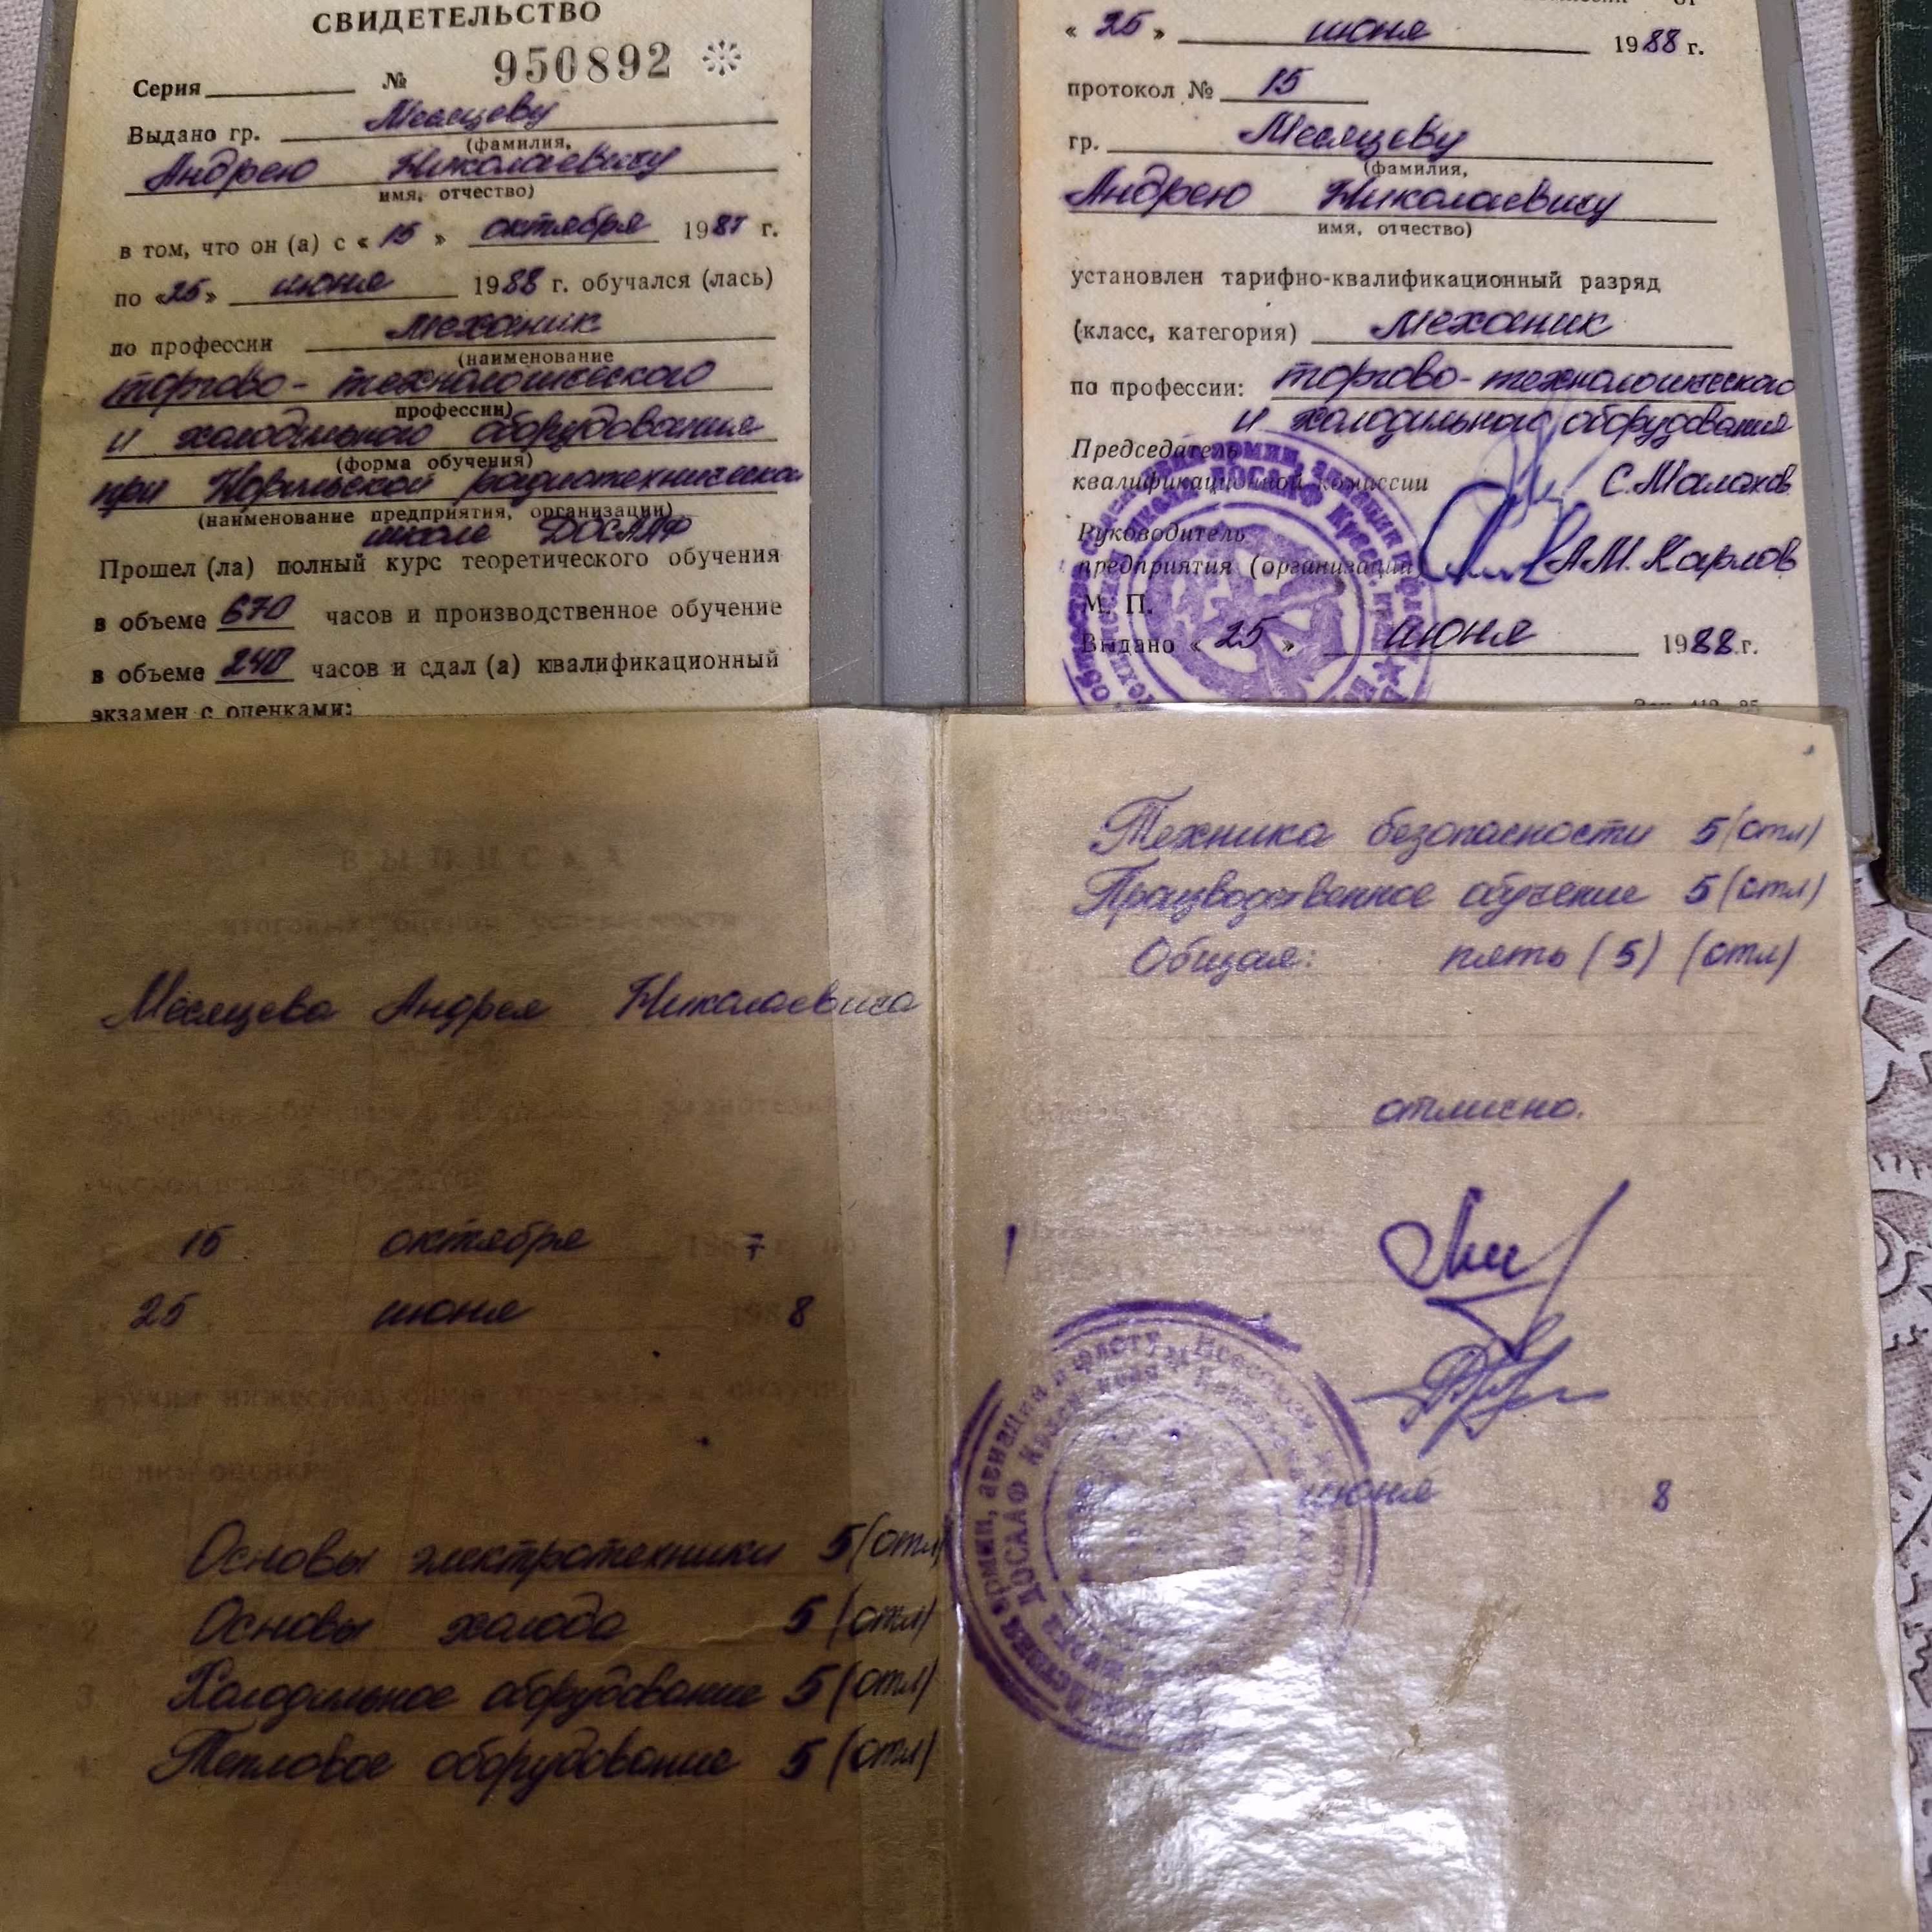 СВИДЕТЕЛЬСТВО
Серия № 950892
Выдано гр. Месяцеву
(фамилия,
Андрею Николаевичу
имя, отчество)
в том, что он (а) с « 15 » октября 1987 г.
по «25» июня 1988 г. обучался (лась)
по профессии механик
(наименование
торгово-технологического
профессии)
и холодильного оборудования
(форма обучения)
при Норильской радиотехнической
(наименование предприятия, организации)
школе ДОСААФ
Прошел (ла) полный курс теоретического обучения
в объеме 670 часов и производственное обучение
в объеме 240 часов и сдал (а) квалификационный
экзамен с оценками:
« 25 » июня 1988 г.
протокол № 15
гр. Месяцеву
(фамилия,
Андрею Николаевичу
имя, отчество)
установлен тарифно-квалификационный разряд
(класс, категория) механик
по профессии: торгово-технологического
и холодильного оборудования
Председатель
квалификационной комиссии С.Малахов
Руководитель
предприятия (организации) А.М.Карлов
М. П.
Выдано « 25 » июня 1988 г.
ВЫПИСКА
итоговых оценок успеваемости
Месяцева Андрея Николаевича
15 октября 7
25 июня 8
Основы электротехники 5 (отл)
Основы холода 5 (отл)
Холодильное оборудование 5 (отл)
Тепловое оборудование 5 (отл)
Техника безопасности 5 (отл)
Производственное обучение 5 (отл)
Общая: пять (5) (отл)
отлично.
июня 8